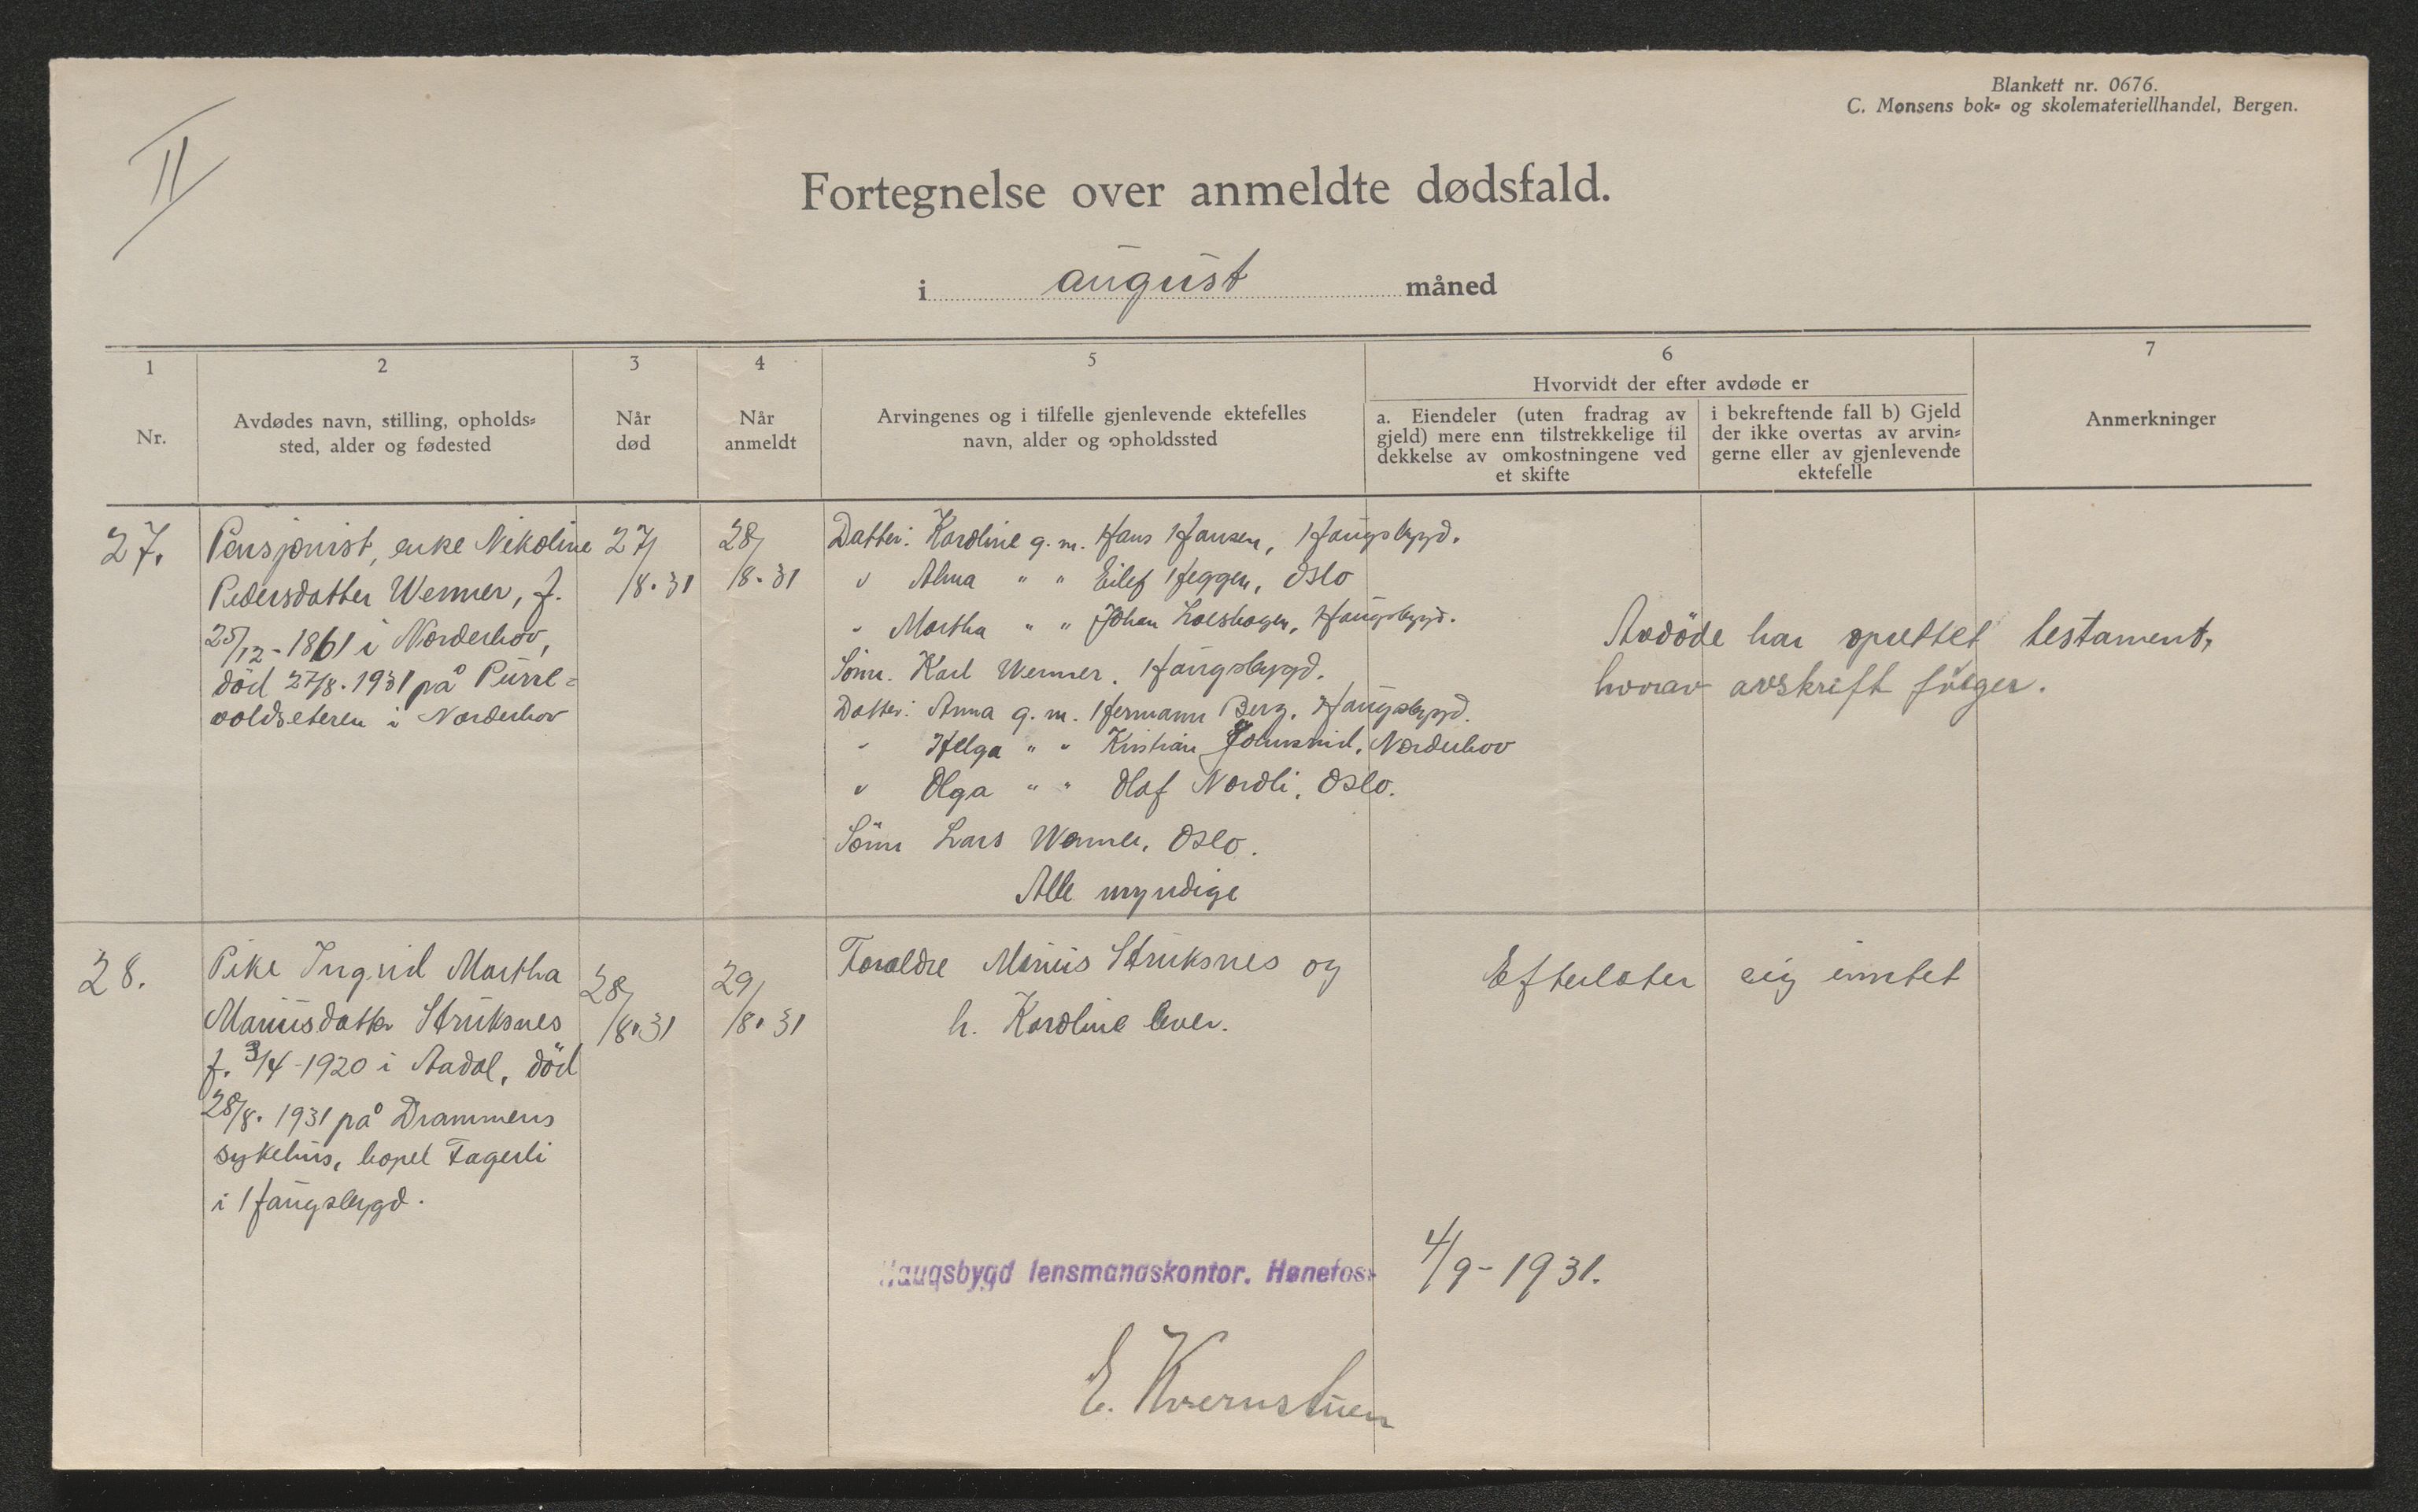 Blankett nr. 0676.
C. Monsens bok- og skolemateriellhandel, Bergen.
II
Fortegnelse over anmeldte dødsfald.
i august måned
1
Nr.
2
Avdødes navn, stilling, opholds-
sted, alder og fødested
3
Når
død
4
Når
anmeldt
5
Arvingenes og i tilfelle gjenlevende ektefelles
navn, alder og opholdssted
6
Hvorvidt der efter avdøde er
a. Eiendeler (uten fradrag av
gjeld) mere enn tilstrekkelige til
dekkelse av omkostningene ved
et skifte
i bekreftende fall b) Gjeld
der ikke overtas av arvin-
gerne eller av gjenlevende
ektefelle
7
Anmerkninger
27.
Pensjonist, enke Nikoline
Pedersdatter Werner, f.
25/12-1861 i Norderhov,
död 27/8.1931 på
voldseteren i Norderhov
27/8.31
28/8.31
Datter: Karoline g. m. Hans Hansen, Haugsbygd.
" Alma " " Eilef Heggen, Oslo
" Martha " " Johan Haugsbygd.
Sönn. Karl Werner. Haugsbygd.
Datter: Anna g. m. Hermann Berg. Haugsbygd.
" Helga " " Kristian Norderhov
" Olga " " Olaf Nordli, Oslo.
Sönn Lars Werner, Oslo.
Alle myndige
Avdöde har oprettet testament,
hvorav avskrift fölger.
28.
Pike Ingrid Martha
Mariusdatter Struksnes
f. 3/4-1920 i Aadal, död
28/8.1931 på Drammens
sykehus, bopel Fagerli
i Haugsbygd.
28/8.31
29/8.31
Foreldre Marius Struksnes og
h. Karoline lever.
Efterlater sig inntet
Haugsbygd lensmandskontor. Hønefoss
4/9-1931.
E. Kvernstuen